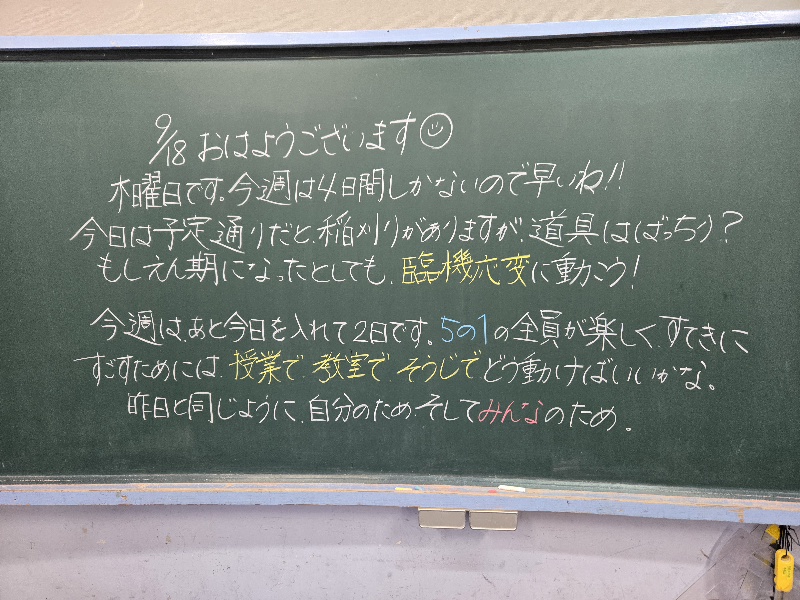 9/18 おはようございます☺
木曜日です。今週は4日間しかないので早いね!!
今日は予定通りだと、稲刈りがありますが、道具はばっちり?
もしえん期になったとしても、臨機応変に動こう!
今週は、あと今日を入れて2日です。5の1の全員が楽しく、すてきに
すごすためには、授業で、教室で、そうじでどう動けばいいかな。
昨日と同じように、自分のため、そしてみんなのため。